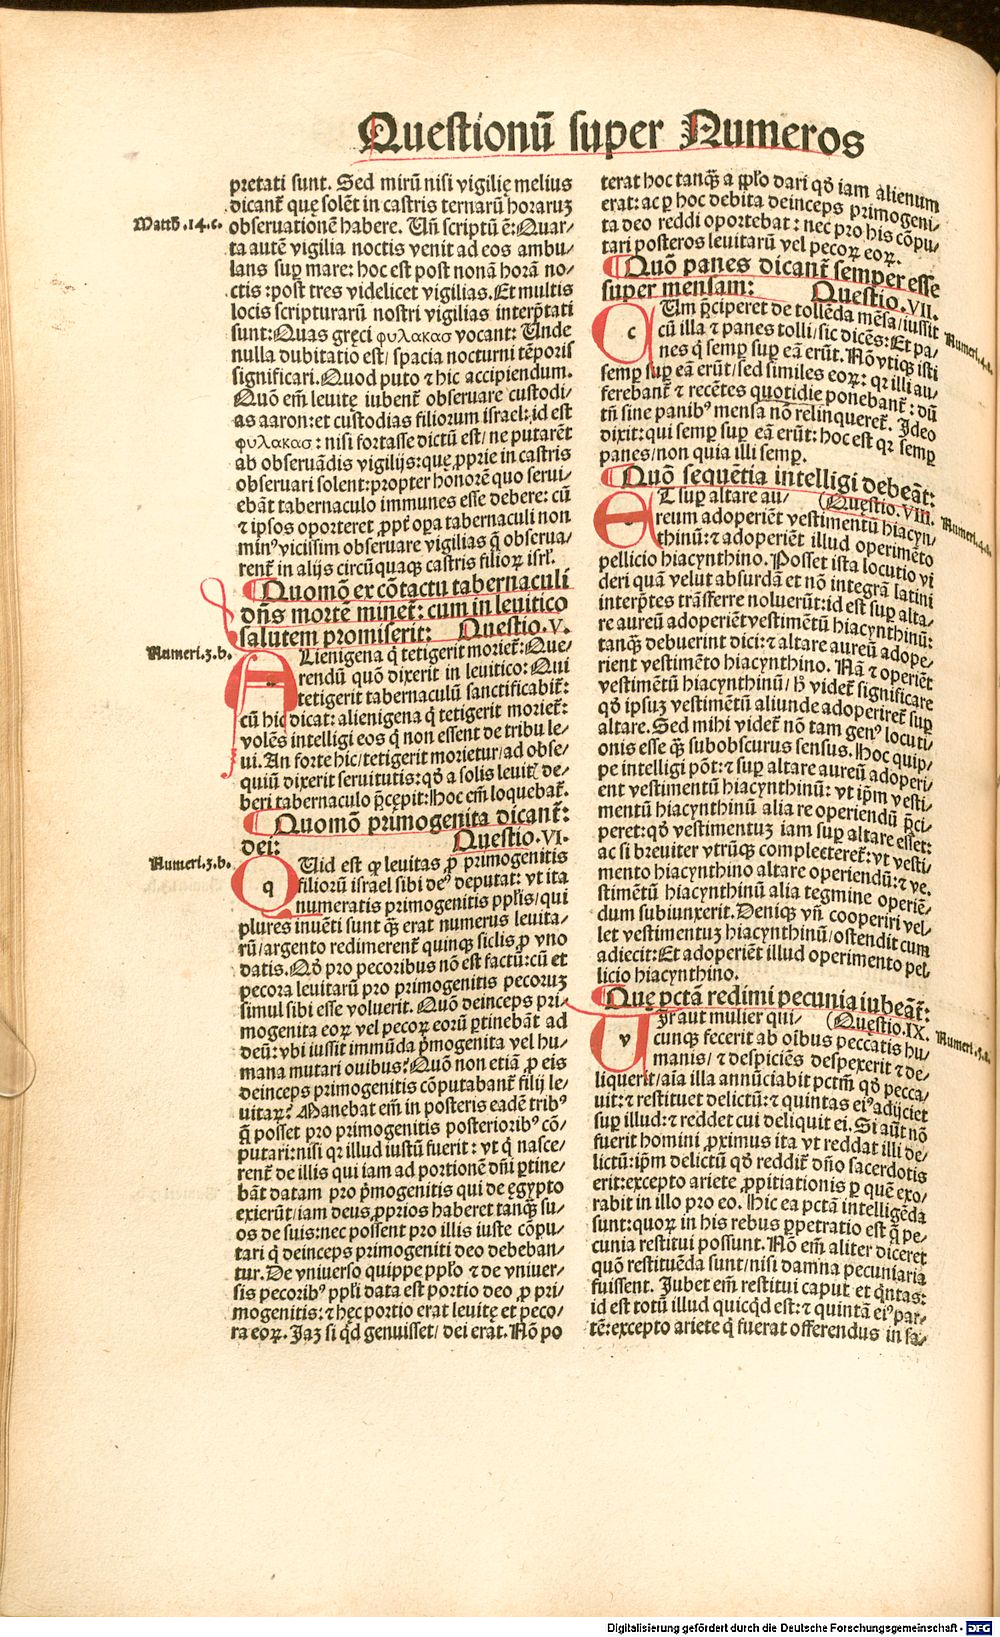 Questionũ super Numeros
pretati sunt. Sed mirũ nisi vigilię melius
dicant̃ quę solẽt in castris ternarũ horaruꝫ
Matth̃.14.c.
obseruationẽ habere. Uñ scriptũ ẽ: Quar⸗
ta autẽ vigilia noctis venit ad eos ambu⸗
lans suꝑ mare: hoc est post nonã horã no⸗
ctis: post tres videlicet vigilias. Et multis
locis scripturarũ nostri vigilias interp̃tati
sunt: Quas gręci φυλακασ vocant: Unde
nulla dubitatio est/ spacia nocturni tẽporis
significari. Quod puto ⁊ hic accipiendum.
Quõ em̃ leuitę iubent̃ obseruare custodi⸗
as aaron: et custodias filiorum israel: id est
φυλακασ: nisi fortasse dictũ est/ ne putarẽt
ab obseruãdis vigilijs: que ꝓprie in castris
obseruari solent: propter honorẽ quo serui⸗
ebãt tabernaculo immunes esse debere: cũ
⁊ ipsos oporteret ꝓpt̃ oꝑa tabernaculi non
minꝰ vicissim obseruare vigilias q̃ obserua⸗
rent̃ in alijs circũquaqꝫ castris filioꝝ isrl̃.
Quomõ ex cõtactu tabernaculi
dñs mortẽ minet̃: cum in leuitico
salutem promiserit: Questio.V.
Numeri.3.b.
ALienigena q̃ tetigerit moriet̃: Que⸗
rendũ quõ dixerit in leuitico: Qui
tetigerit tabernaculũ sanctificabit̃:
cũ hic dicat: alienigena q̃ tetigerit moriet̃:
volẽs intelligi eos q̃ non essent de tribu le⸗
ui. An forte hic/ tetigerit morietur/ ad obse⸗
quiũ dixerit seruitutis: qđ a solis leuit̃ de⸗
beri tabernaculo p̃cępit: Hoc em̃ loquebat̃.
Quomõ primogenita dicant̃:
dei: Questio.VI.
Numeri.3.b.
QUid est ꝙ leuitas ꝓ primogenitis
filiorũ israel sibi deꝰ deputat: vt ita
numeratis primogenitis ppl̃is/ qui
plures inuẽti sunt q̃ꝫ erat numerus leuita⸗
rũ/ argento redimerent̃ quinqꝫ siclis ꝓ vno
datis. Qđ pro pecoribus nõ est factũ: cũ et
pecora leuitarũ pro primogenitis pecoruꝫ
simul sibi esse voluerit. Quõ deinceps pri⸗
mogenita eoꝝ vel pecoꝝ eorũ ꝑtinebãt ad
deũ: vbi iussit immũda p̃mogenita vel hu⸗
mana mutari ouibus: Quõ non etiã ꝓ eis
deinceps primogenitis cõputabant̃ filij le⸗
uitaꝝ? Manebat em̃ in posteris eadẽ tribꝰ
q̃ posset pro primogenitis posterioribꝰ cõ⸗
putari: nisi qꝛ illud iustũ fuerit: vt q̃ nasce⸗
rent̃ de illis qui iam ad portionẽ dñi ꝑtine⸗
bãt datam pro p̃mogenitis qui de ęgypto
exierũt/ iam deus ꝓprios haberet tanq̃ꝫ su⸗
os de suis: nec possent pro illis iuste cõpu⸗
tari q̃ deinceps primogeniti deo debeban⸗
tur. De vniuerso quippe ppl̃o ⁊ de vniuer⸗
sis pecoribꝰ ppl̃i data est portio deo ꝓ pri⸗
mogenitis: ⁊ hęc portio erat leuitę et peco⸗
ra eoꝝ. Jaꝫ si q̃d genuisset/ dei erat. Nõ po
terat hoc tanq̃ꝫ a ppl̃o dari qđ iam alienum
erat: ac ꝑ hoc debita deinceps primogeni⸗
ta deo reddi oportebat: nec pro his cõpu⸗
tari posteros leuitarũ vel pecoꝝ eoꝝ.
Quõ panes dicant̃ semper esse
super mensam: Questio.VII.
CUm p̃ciperet de tollẽda mẽsa/ iussit
Numeri.4.a.
cũ illa ⁊ panes tolli/ sic dicẽs: Et pa⸗
nes q̃ semꝑ suꝑ eã erũt. Nõ vtiqꝫ isti
semꝑ suꝑ eã erũt/ sed similes eoꝝ: qꝛ illi au⸗
ferebant̃ ⁊ recẽtes quotidie ponebant̃: dũ
tñ sine panibꝰ mensa nõ relinqueret̃. Ideo
dixit: qui semꝑ suꝑ eã erũt: hoc est qꝛ semꝑ
panes/ non quia illi semꝑ.
Quõ sequẽtia intelligi debeãt:
ET suꝑ altare au⸗ (Questio.VIII.
reum adoperiẽt vestimentũ hiacyn⸗
Numeri.4.a.
thinũ: ⁊ adoperiẽt illud operimẽto
pellicio hiacynthino. Posset ista locutio vi
deri quã velut absurdã et nõ integrã latini
interp̃tes trãsferre noluerũt: id est suꝑ alta⸗
re aureũ adoperiẽt vestimẽtũ hiacynthinũ:
tanq̃ꝫ debuerint dici: ⁊ altare aureũ adope⸗
rient vestimẽto hiacynthino. Nã ⁊ operiẽt
vestimẽtũ hiacynthinũ/ hͦ videt̃ significare
qđ ipsuꝫ vestimẽtũ aliunde adoperiret̃ suꝑ
altare. Sed mihi videt̃ nõ tam genꝰ locuti⸗
onis esse q̃ꝫ subobscurus sensus. Hoc quip⸗
pe intelligi põt: ⁊ suꝑ altare aureũ adoperi⸗
ent vestimentũ hiacynthinũ: vt ip̃m vesti⸗
mentũ hiacynthinũ alia re operiendũ p̃ci⸗
peret: qđ vestimentuꝫ iam suꝑ altare esset:
ac si breuiter vtrũqꝫ complecteret̃: vt vesti⸗
mento hiacynthino altare operiendũ: ⁊ ve⸗
stimẽtũ hiacynthinũ alia tegmine operiẽ⸗
dum subiunxerit. Deniqꝫ vñ cooperiri vel⸗
let vestimentuꝫ hiacynthinũ/ ostendit cum
adiecit: Et adoperiẽt illud operimento pel
licio hiacynthino.
Quę pctã redimi pecunia iubeãt̃:
VIr aut mulier qui⸗ (Questio.IX.
Numeri.5.a.
cunqꝫ fecerit ab oĩbus peccatis hu⸗
manis/ ⁊ despiciẽs despexerit ⁊ de⸗
liquerit/ aĩa illa annũciabit pctm̃ qđ pecca⸗
uit: ⁊ restituet delictũ: ⁊ quintas eiꝰ adijciet
suꝑ illud: ⁊ reddet cui deliquit ei. Si aũt nõ
fuerit homini ꝓximus ita vt reddat illi de⸗
lictũ: ip̃m delictũ qđ reddit̃ dño sacerdotis
erit: excepto ariete ꝓpitiationis ꝑ quẽ exo⸗
rabit in illo pro eo. Hic ea pctã intelligẽda
sunt: quoꝝ in his rebus ꝑpetratio est q̃ pe⸗
cunia restitui possunt. Nõ em̃ aliter diceret
quõ restituẽda sunt/ nisi damna pecuniaria
fuissent. Jubet em̃ restitui caput et q̃ntas:
id est totũ illud quicq̃d est: ⁊ quintã eiꝰ par⸗
tẽ: excepto ariete q̃ fuerat offerendus in sa⸗
Digitalisierung gefördert durch die Deutsche Forschungsgemeinschaft - DFG